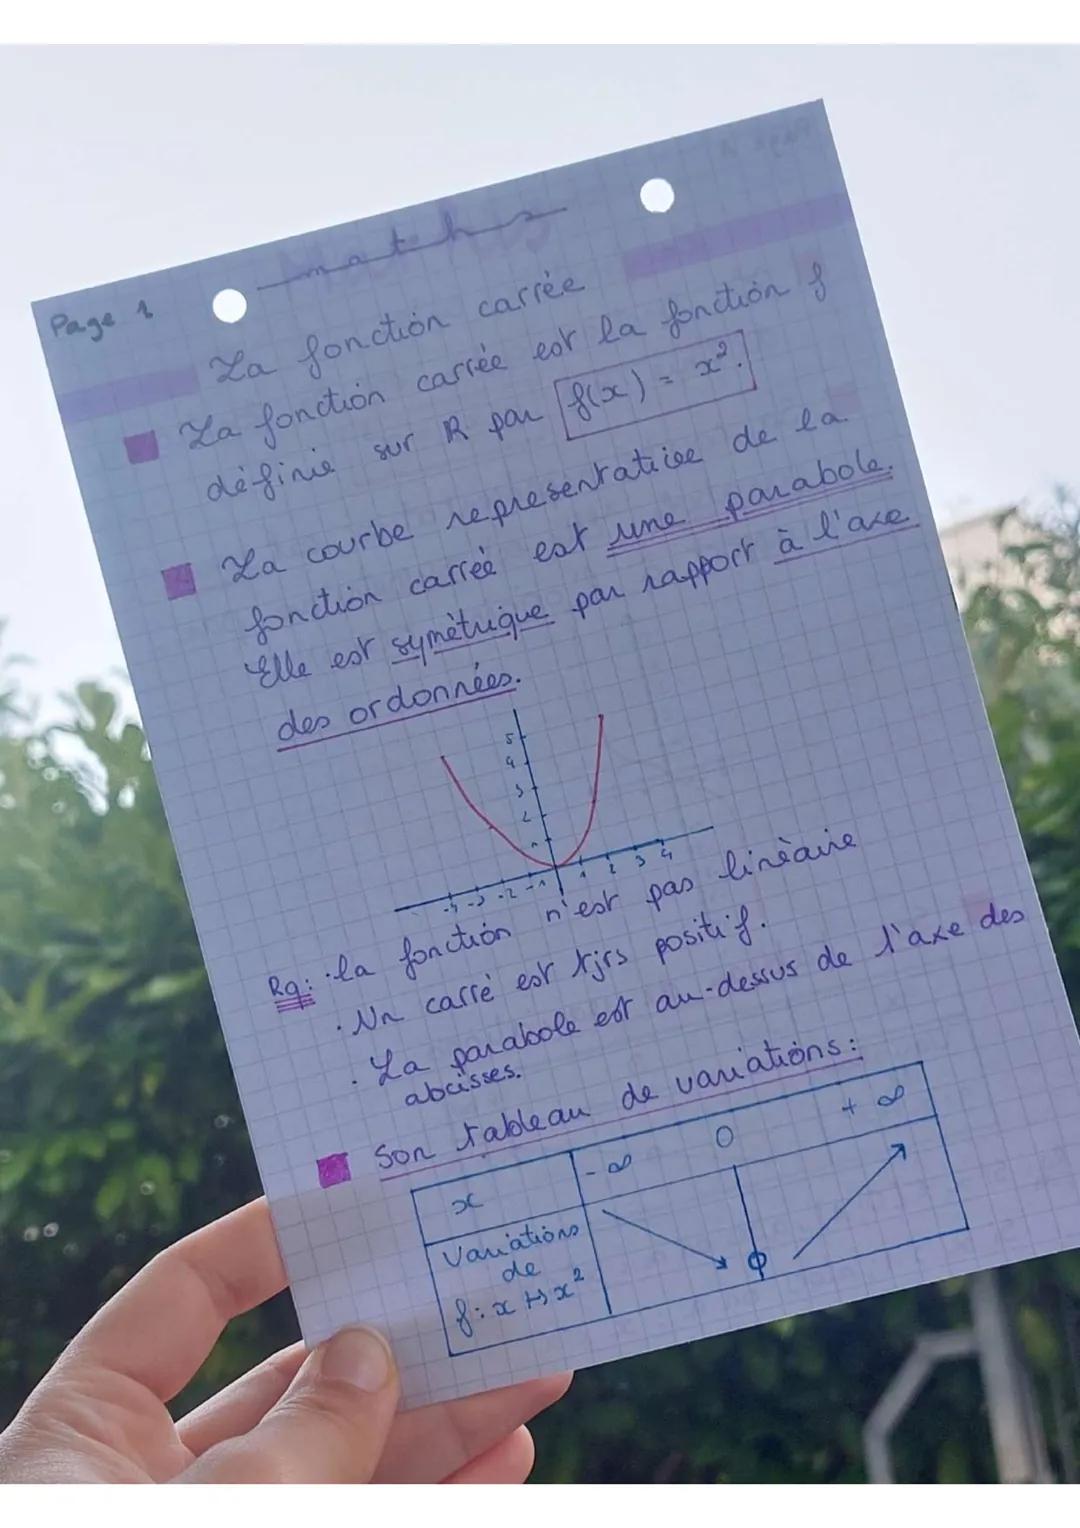 Page 1
maths
La fonction carrée
La fonction carrée est la fonction f
définie sur R par f(x) = x².
La courbe representative de la
fonction carrée est une parabole.
Elle est symètrique par rapport à l'axe
des ordonnées.
5
4
3
2
1
-4 -3 -2 -1 1 2 3 4
Rq: · la fonction n'est pas linèaire
· Un carré est tjrs positif.
· La parabole est au-dessus de l'axe des
abcisses.
Son tableau de variations:
x -∞ 0 +∞
Variations
de
f: x ↦ x²
0